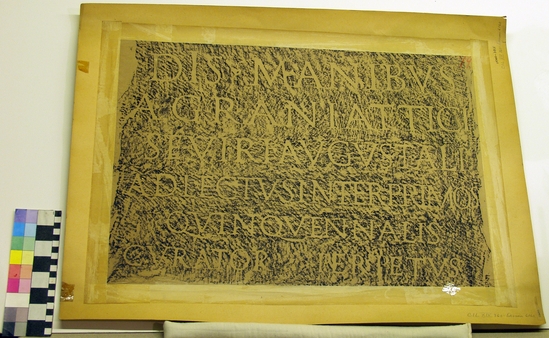 DIS MANIBVS
A GRANI ATTICI
SEVIRI AVGVSTAL
ADLECTVS INTER PRIMOS
QVINQVENNALIS
CVRATOR PERPETVVS